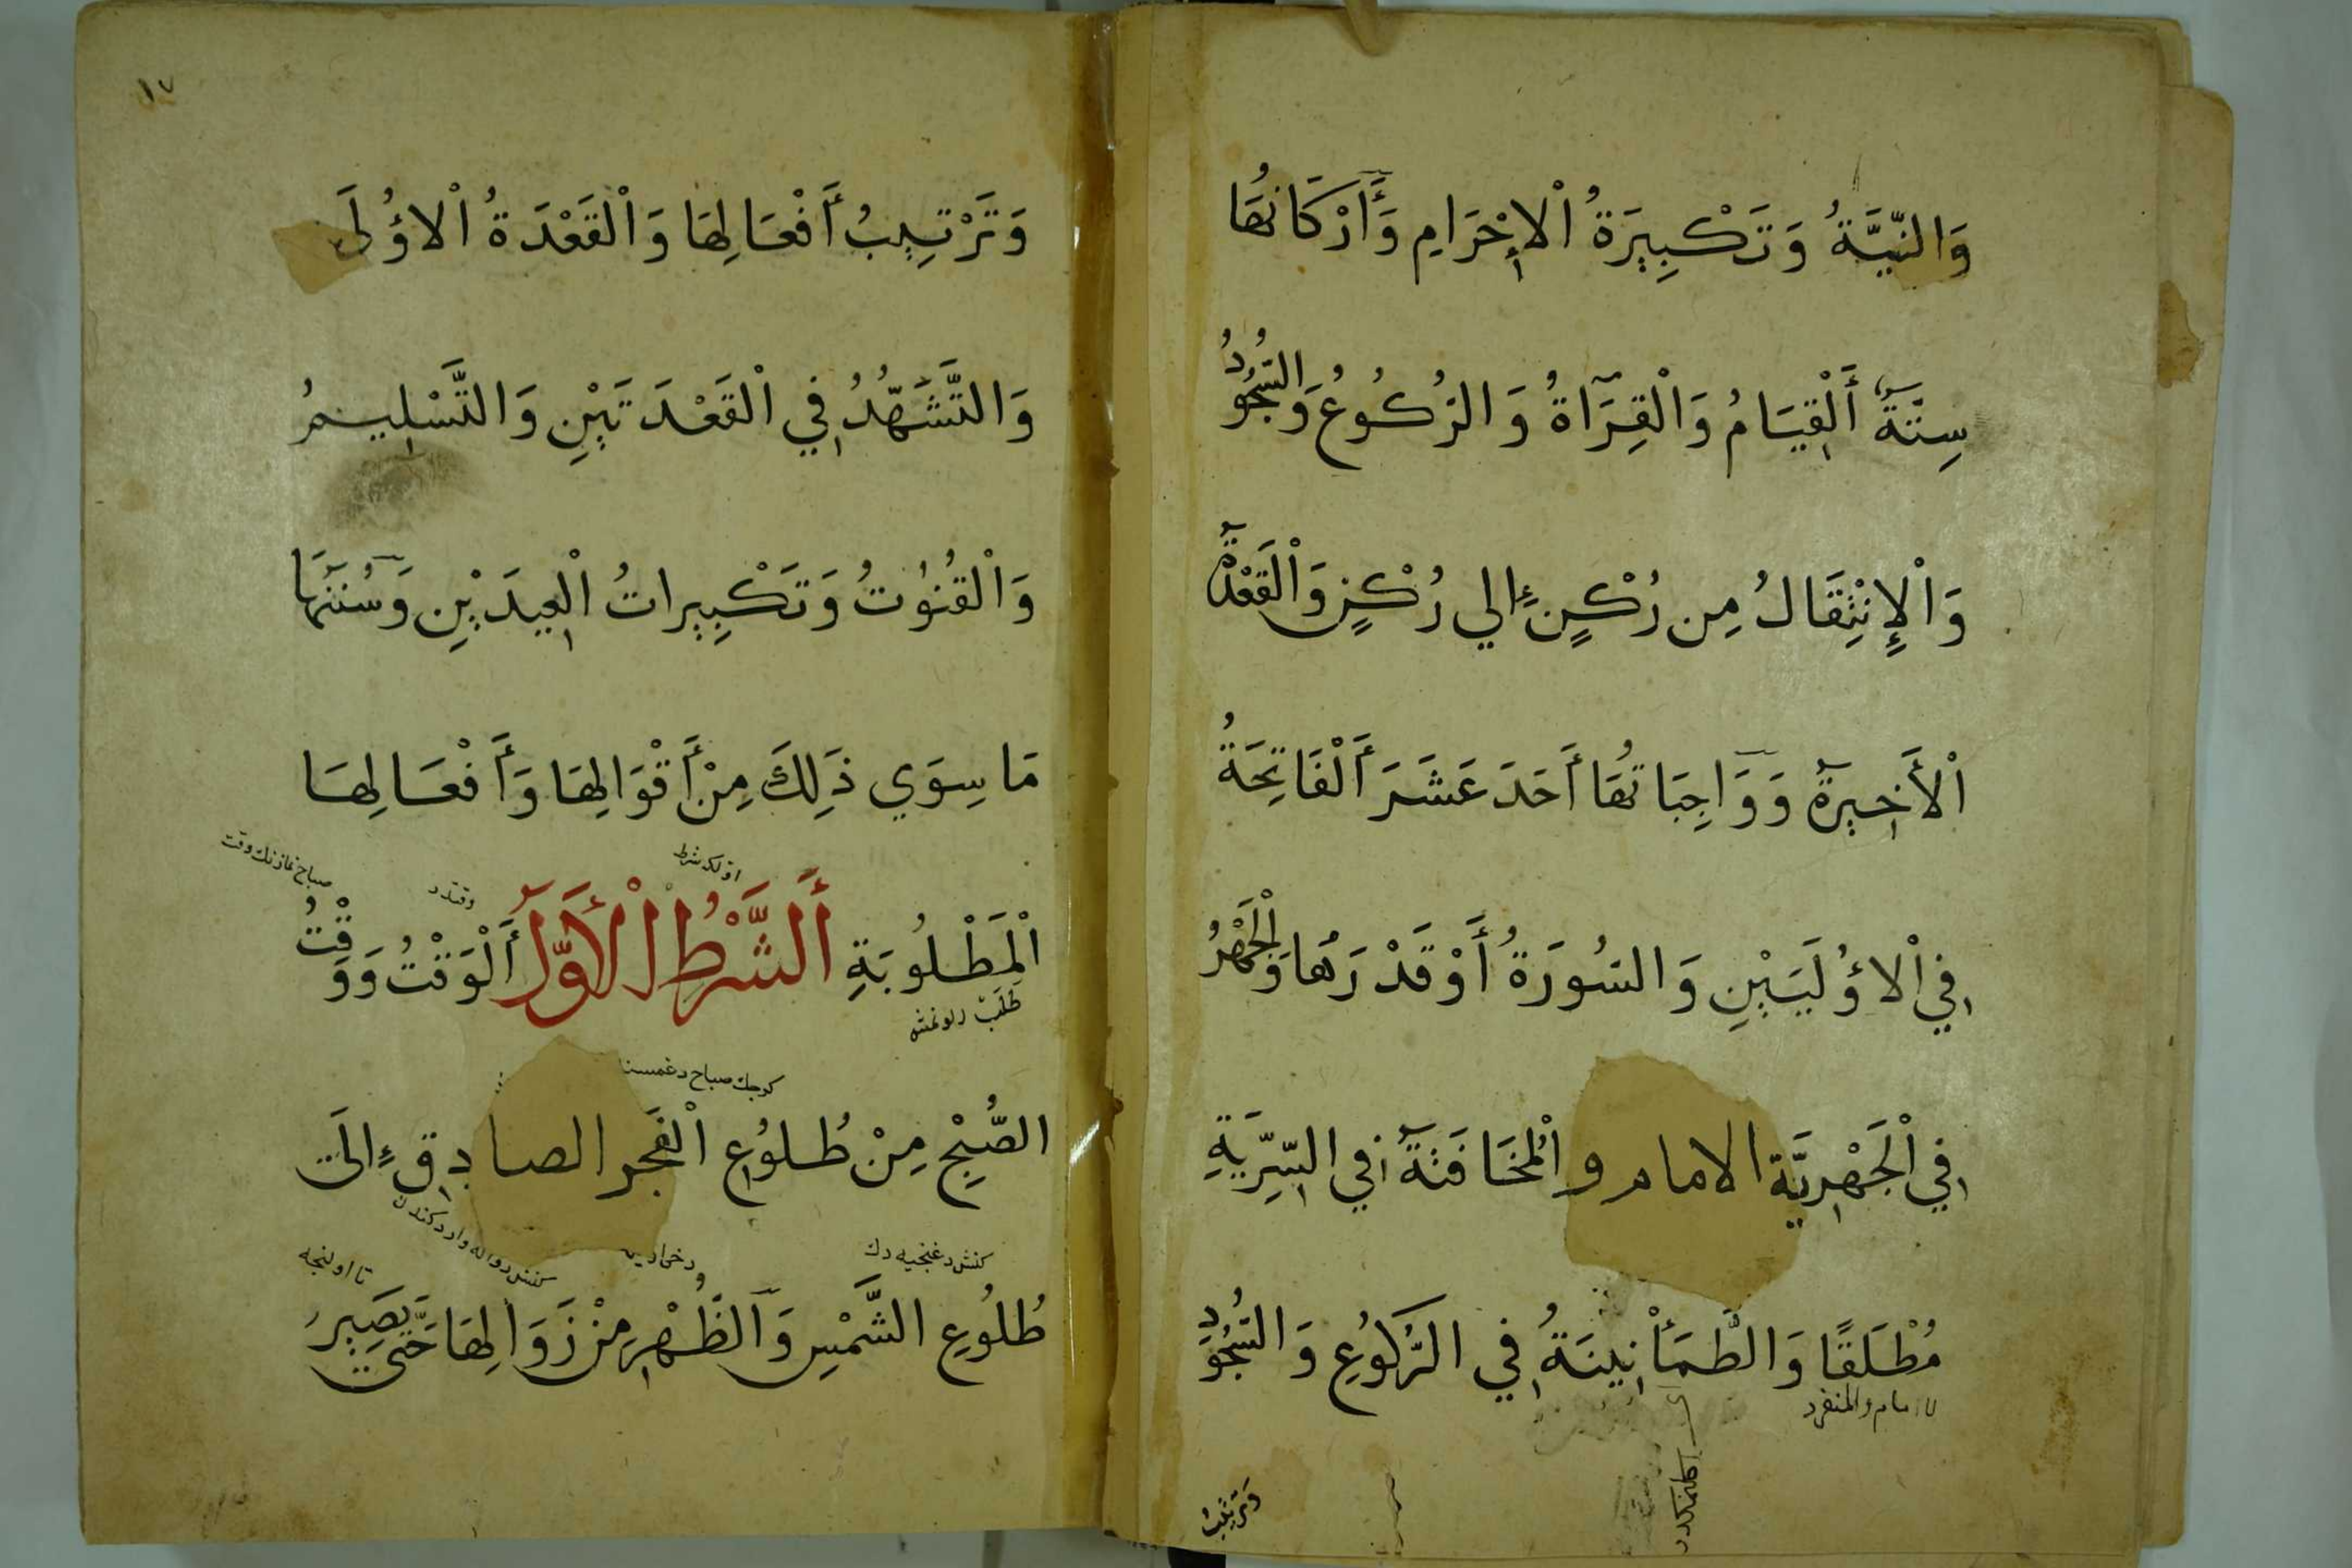 وَالنِّيَّةُ وَتَكْبِيرَةُ اْلاِحْرَامِ وَأَرْكَانُهَا
سِتَّةٌ أَلْقِيَامُ وَالْقِرَآاةُ وَالرُكُوعُ وَالسُّجُودُ
وَاْلاِنْتِقَالُ مِن رُكْنٍ اِلي رُكْنٍ وَالْقَعْدَةُ
اْلأَخِيرَةُ وَوَاجِبَاتُهَا أَحَدَ عَشَرَ أَلْفَاتِحَةُ
فِي اْلاؤُلَيَيْنِ وَالسُورَةُ أَوْ قَدْرَهَا وَالْجَهْرُ
فِي الْجَهْرِيَّةِ الامام والْمُخَافَتَةُ فِي السِّرِيَّةِ
مُطْلَقًا وَالطُّمَأْنِينَةُ فِي الرُّكُوُعِ وَالسُّجُودِ
لامام والمنفرد
وَتَرْتِيبُ
١٧
وَتَرْتِيبُ أَفْعَالِهَا وَالْقَعْدَةُ اْلاؤُلَى
وَالتَّشَهُّدُ فِي الْقَعْدَتَيْنِ وَالتَّسْلِيمُ
وَالْقُنُوتُ وَتَكْبِيراتُ الْعِيدَيْنِ وَسُنَنُهَا
مَا سِوَي ذَلِكَ مِنْ أَقْوَالِهَا وَأَفْعَالِهَا
اولكى شرط وقتدر صباح نمازنك وقت
الْمَطْلُوبَةِ أَلشَّرْطُ الْأَوَّلُ أَلْوَقْتُ وَوَقْتُ
طلب اولونمش
صباح
الصُّبْحِ مِنْ طُلوُعِ الْفَجَرِ الصادِقِ اِلَى
تا اولنجه
طُلُوُعِ الشَّمْسِ وَالظُّهْرِ مِنْ زَوَالِهَا حَتَّى يَصِيرُ